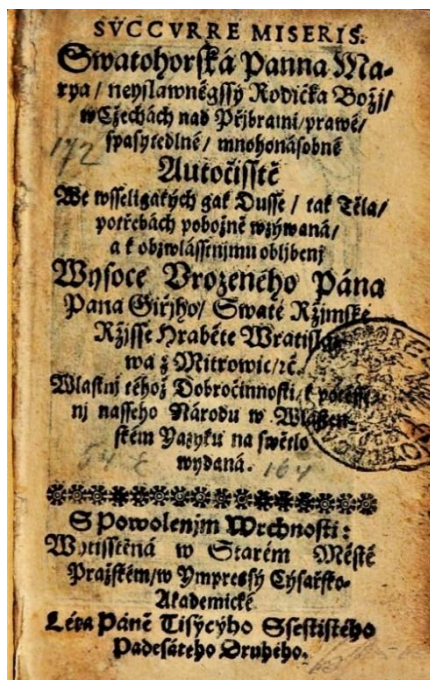 SVCCVRRE MISERIS.
Swatohorská Panna Ma-
rya / neyslawněgssý Rodička Božj /
w Cžechách nad Přjbrami / prawé /
spasytedlné / mnohonásobné
172
Autočisstě
We wsseligakých gak Dusse / tak Těla /
potřebách pobožně wzýwaná /
a k obzwlásstnjmu obljbenj
Wysoce Vrozeného Pána
Pana Giřjho / Swaté Ržjmské
Ržjsse Hraběte Wratisla-
wa z Mitrowic / ꝛč.
Wlastnj téhož Dobročinnosti / k potěsse-
nj nasseho Národu w Wlasten-
ském Yazyku na swětlo
wydaná.
164
S Powolenjm Wrchnosti:
Wytisstěná w Starém Městě
Pražském / w Ympressý Cýsařsko-
Akademické
Léta Páně Tisýcýho Ssestistého
Padesátého Druhého.